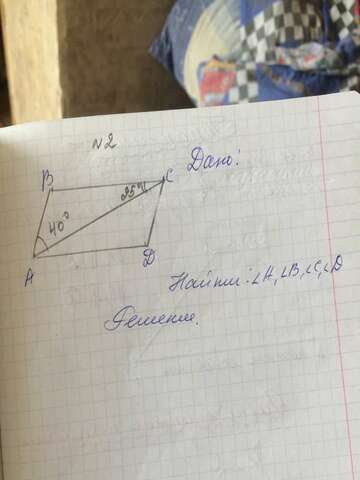 №2
Дано:
B
C
25°
40°
A
D
Найти: ∠A, ∠B, ∠C, ∠D
Решение.